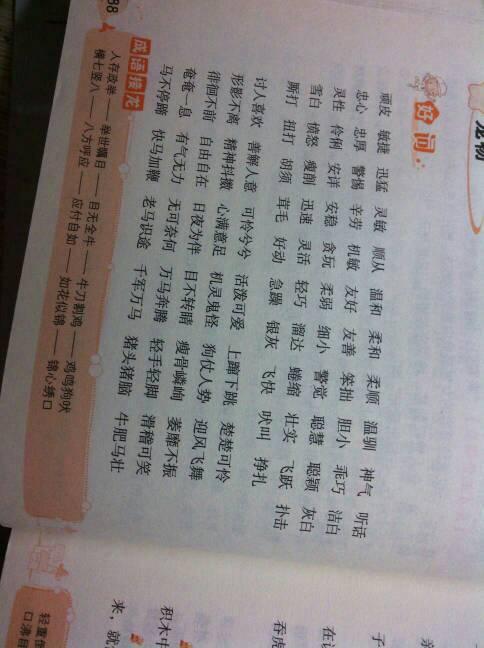 宠物
好词
顽皮 敏捷 迅猛 灵敏 顺从 温和 柔和 柔顺 温驯 神气 听话
忠心 忠厚 警惕 辛劳 机敏 友好 友善 笨拙 胆小 乖巧 洁白
灵性 伶俐 安详 安稳 贪玩 柔弱 细小 警觉 聪慧 聪颖 灰白
雪白 愤怒 瘦削 迅速 灵活 轻巧 溜达 蜷缩 壮实 飞跃 扑击
厮打 扭打 胡须 茸毛 好动 急躁 银灰 飞快 吠叫 挣扎
讨人喜欢 善解人意 可怜兮兮 活泼可爱 上蹿下跳 楚楚可怜
形影不离 精神抖擞 心满意足 机灵鬼怪 狗仗人势 迎风飞舞
徘徊不前 自由自在 日夜为伴 目不转睛 瘦骨嶙峋 萎靡不振
奄奄一息 有气无力 无可奈何 万马奔腾 轻手轻脚 滑稽可笑
马不停蹄 快马加鞭 老马识途 千军万马 猪头猪脑 牛肥马壮
成语接龙
人存政举——举世瞩目——目无全牛——牛刀割鸡——鸡鸣狗吠
横七竖八——八方呼应——应付自如——如花似锦——锦心绣口
88
子
吞虎
积木中
来，就